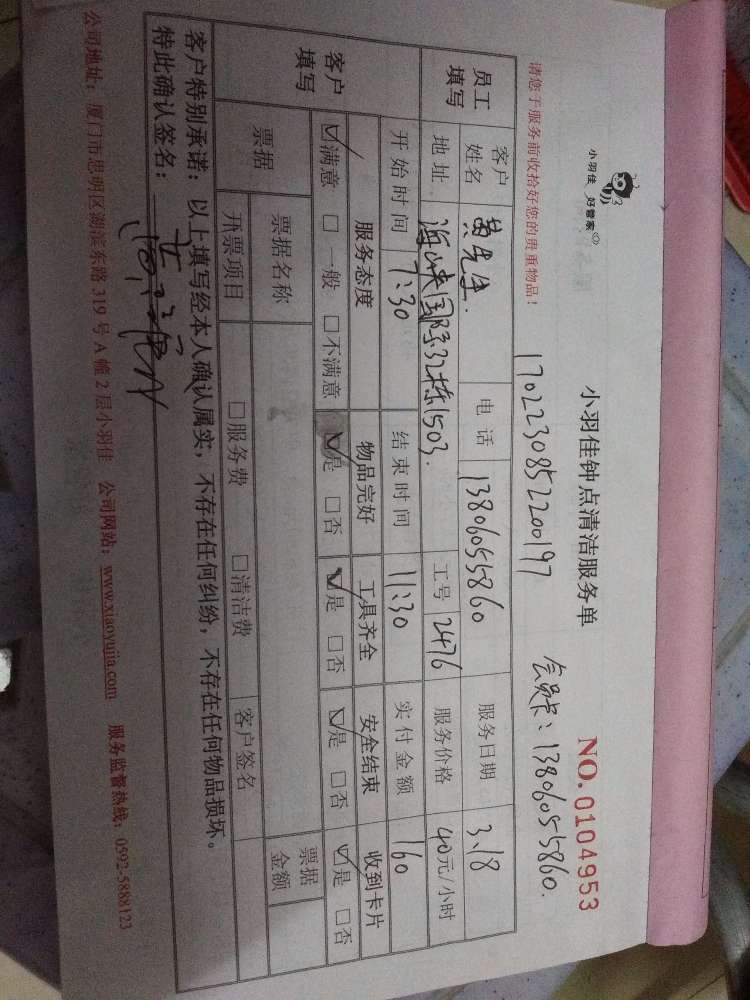 小羽佳 好管家
小羽佳钟点清洁服务单
NO.0104953
1702230852200197
会员卡：13806055860.
请您于服务前收拾好您的贵重物品！
员工填写
客户姓名 黄先生. 电话 13806055860 服务日期 3.18
地址. 海峡国际32栋1503. 工号 2476 服务价格 40元/小时
开始时间 7:30 结束时间 11:30 实付金额 160
客户填写
服务态度 物品完好 工具齐全 安全结束 收到卡片
☑满意 □一般 □不满意 ☑是 □否 ☑是 □否 ☑是 □否 ☑是 □否
票据 票据名称 票据金额
开票项目 □服务费 □清洁费 客户签名
客户特别承诺：以上填写经本人确认属实，不存在任何纠纷，不存在任何物品损坏。
特此确认签名：
公司地址：厦门市思明区湖滨东路319号A幢2层小羽佳 公司网站：www.xiaoyujia.com 服务监督热线：0592-5888123